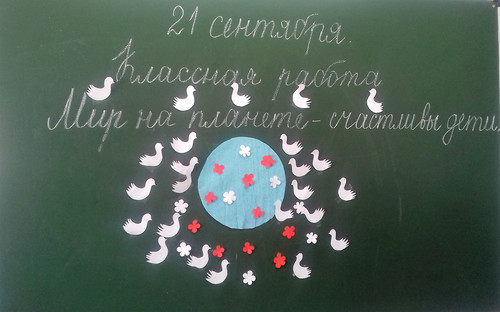 21 сентября.
Классная работа
Мир на планете - счастливы дети